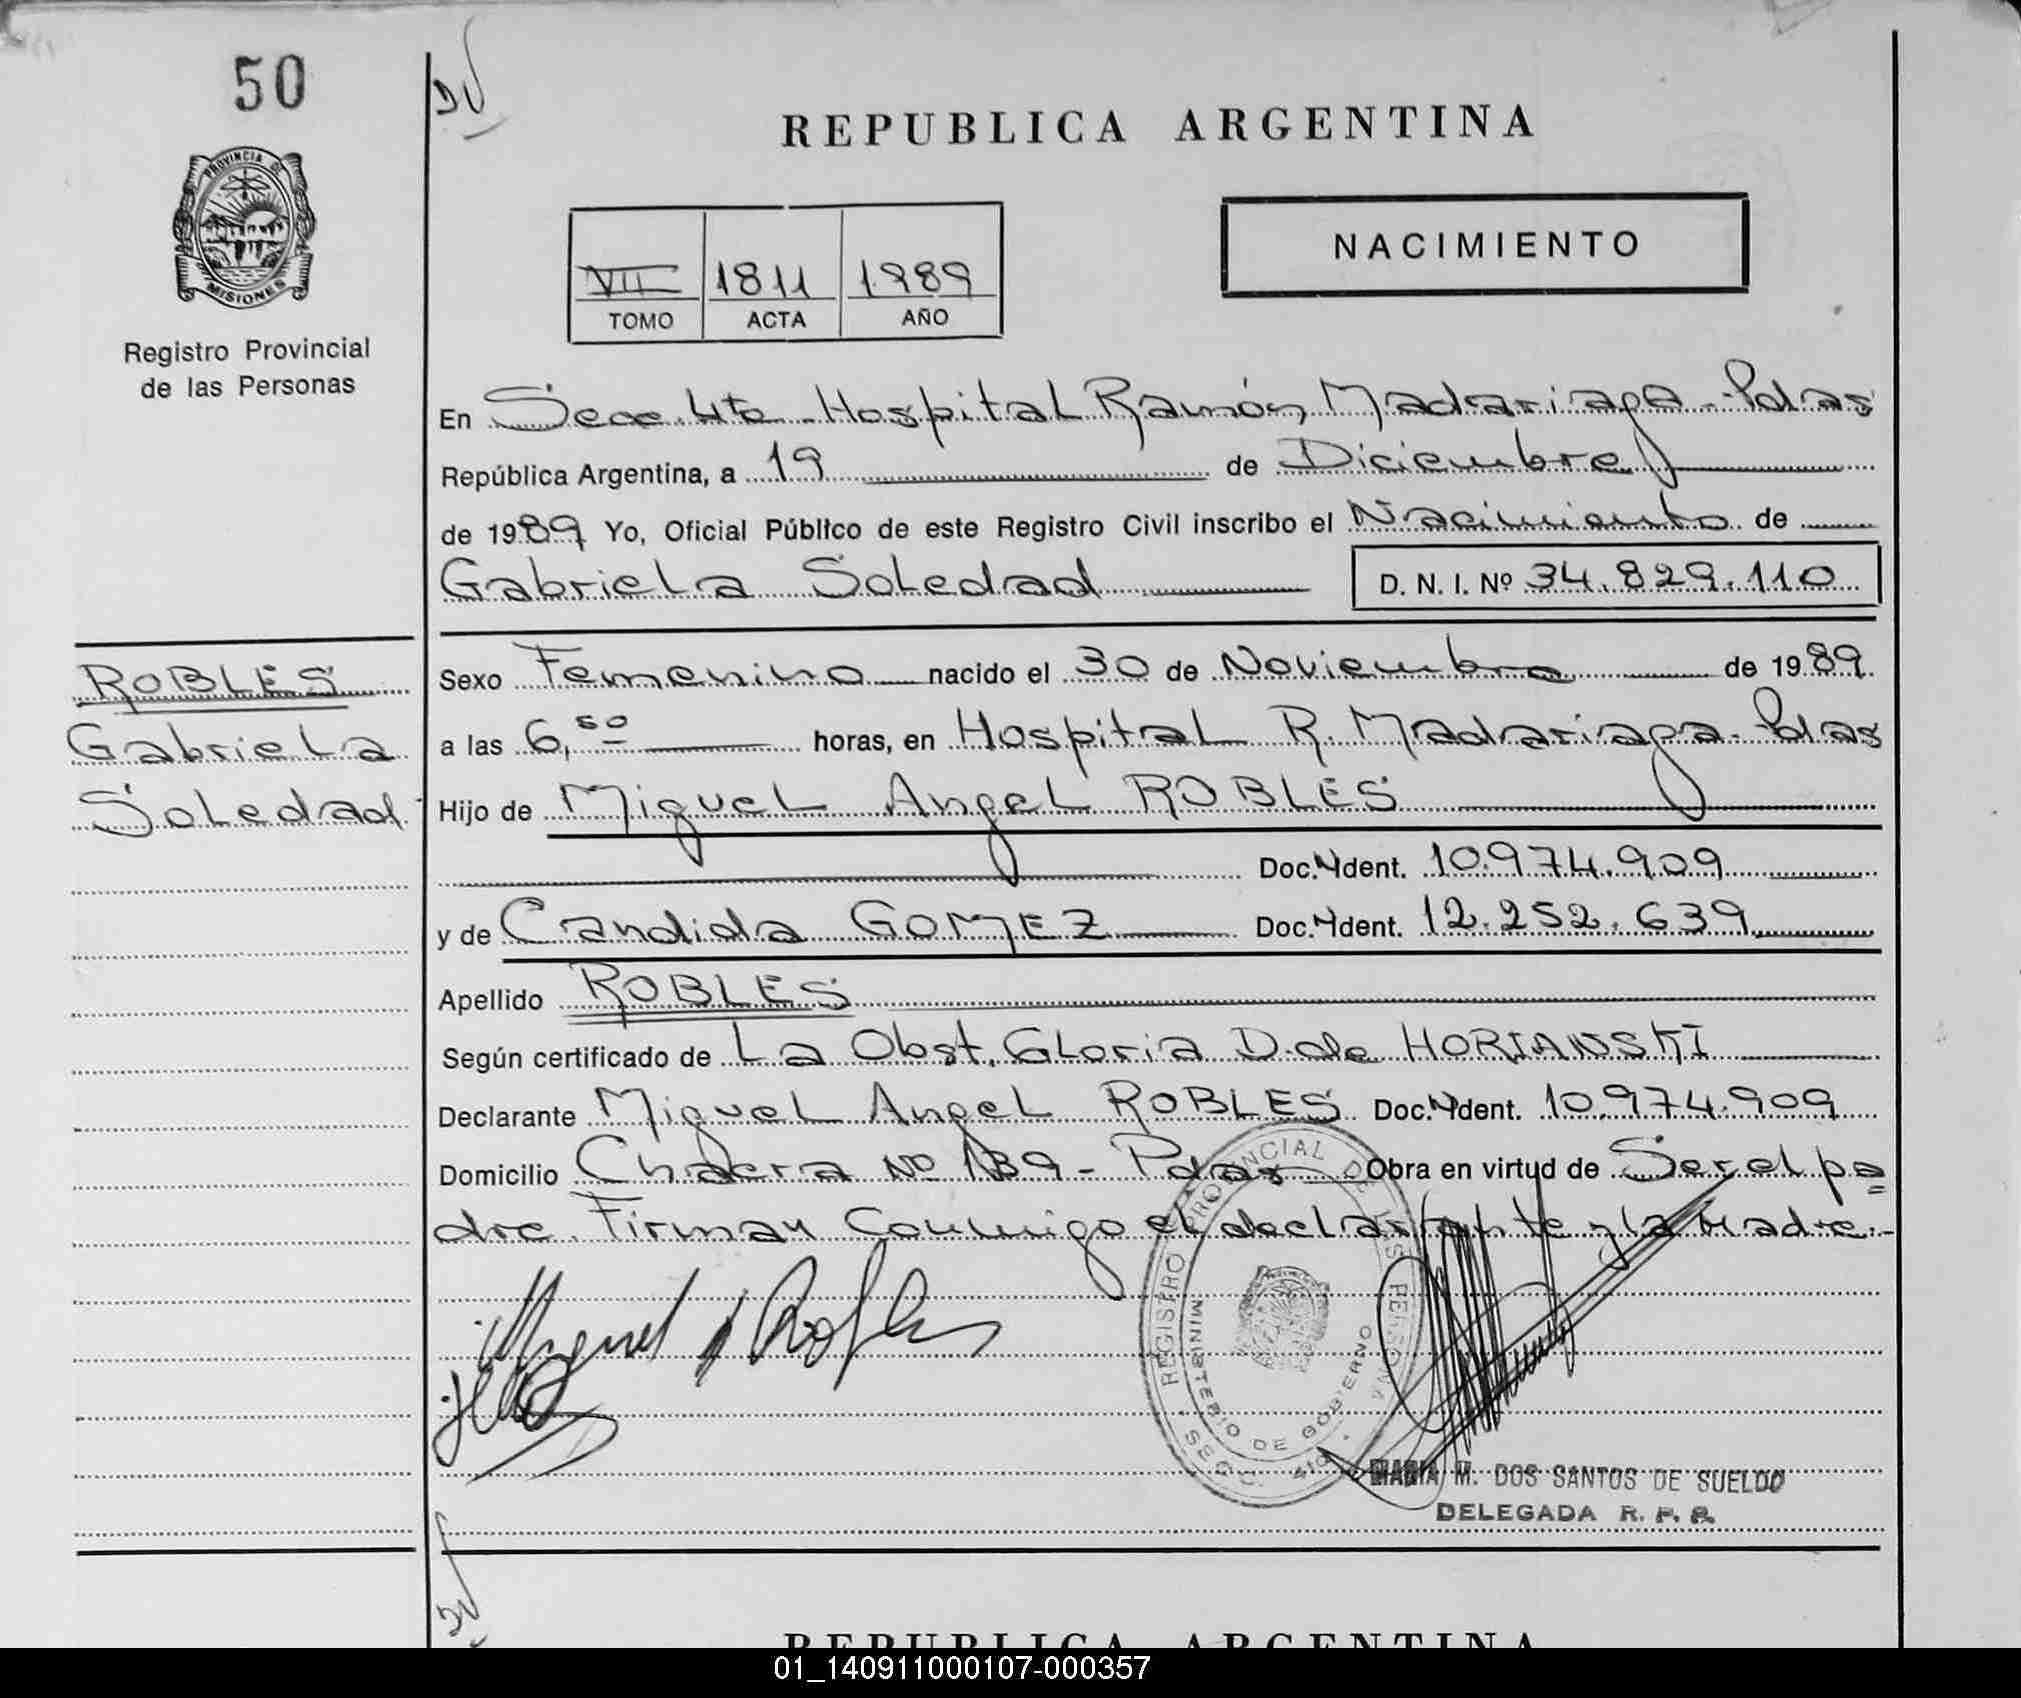 50
DV
REPUBLICA ARGENTINA
PROVINCIA DE
MISIONES
Registro Provincial
de las Personas
VII 1811 1989
TOMO ACTA AÑO
NACIMIENTO
En Secc. 4ta. Hospital Ramón Madariaga - Pdas
República Argentina, a 19 de Diciembre
de 1989 Yo, Oficial Público de este Registro Civil inscribo el Nacimiento de
Gabriela Soledad D. N. I. Nº 34.829.110
ROBLES
Gabriela
Soledad
Sexo Femenino nacido el 30 de Noviembre de 1989
a las 6,50 horas, en Hospital R. Madariaga - Pdas
Hijo de Miguel Angel ROBLES
Doc. Ident. 10.974.909
y de Candida GOMEZ Doc. Ident. 12.252.639
Apellido ROBLES
Según certificado de La Obst. Gloria D. de HORIANSKI
Declarante Miguel Angel ROBLES Doc. Ident. 10.974.909
Domicilio Chacra Nº 139 - Pdas Obra en virtud de Ser el pa=
dre. Firman Conmigo el declarante y la Madre.-
Miguel A Robles
REGISTRO PROVINCIAL DE LAS PERSONAS
MINISTERIO DE GOBIERNO
MARIA M. DOS SANTOS DE SUELDO
DELEGADA R. P. P.
REPUBLICA ARGENTINA
01_140911000107-000357